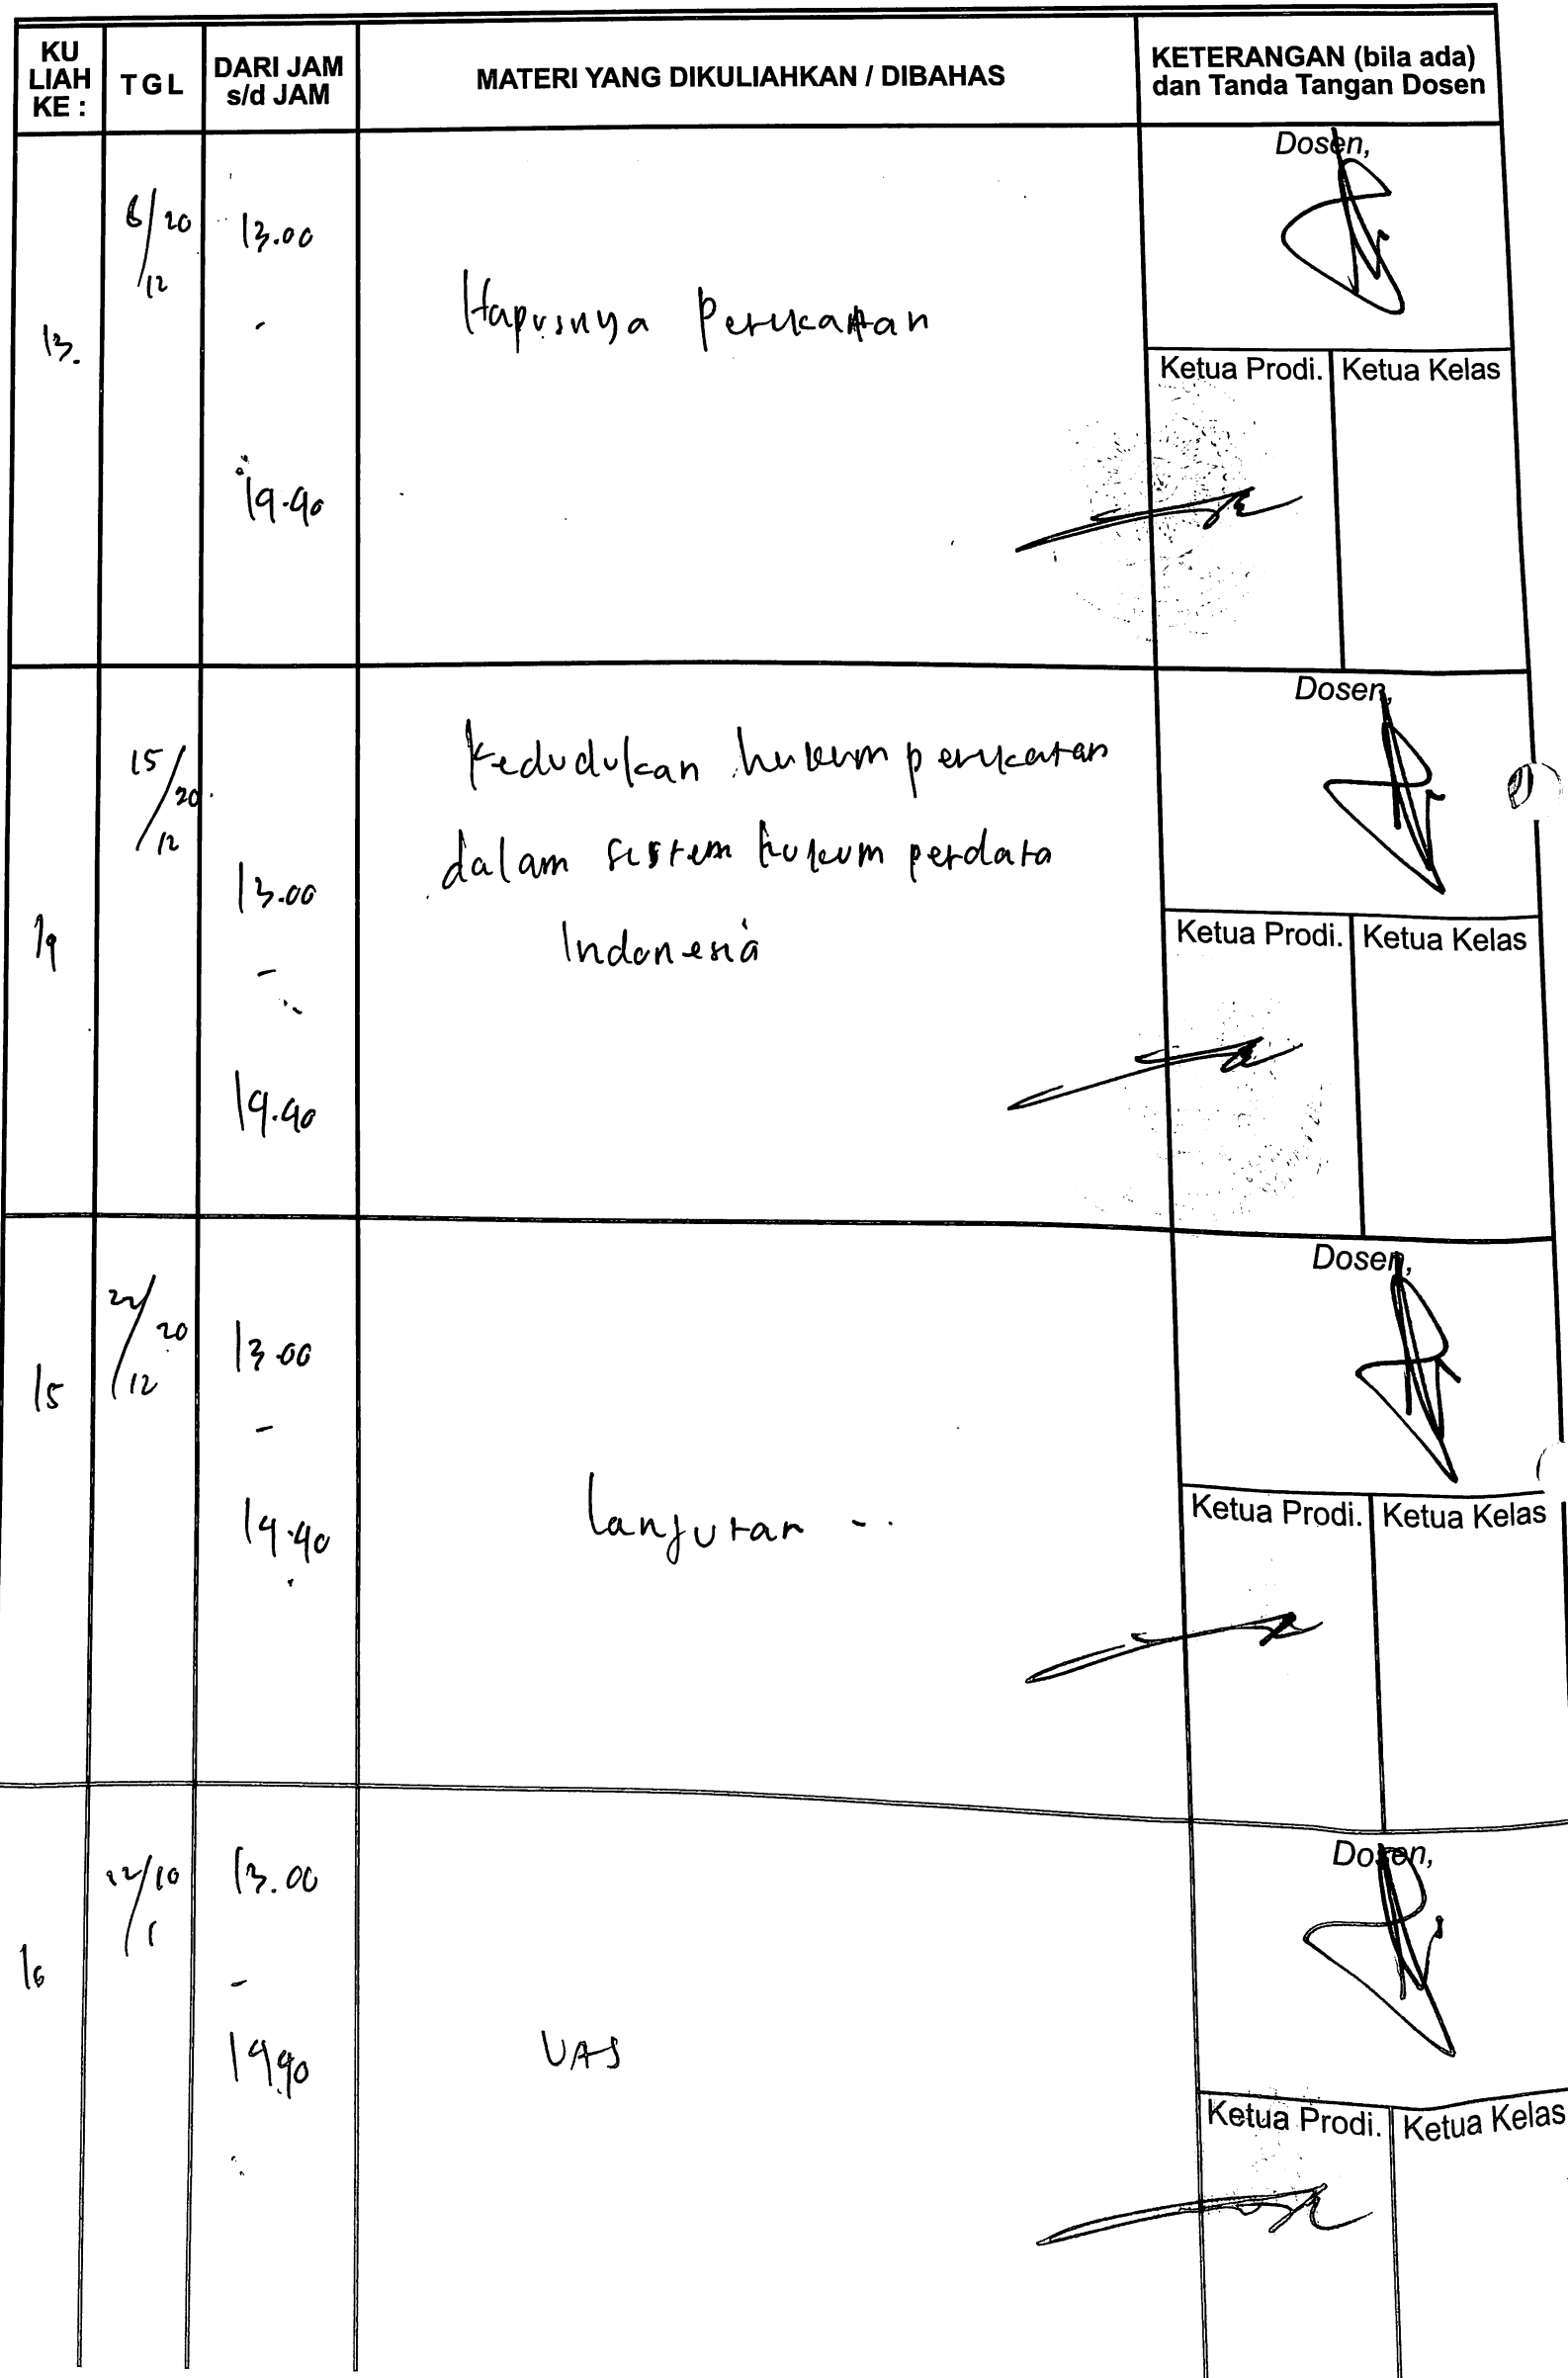 KU LIAH KE :
TGL
DARI JAM s/d JAM
MATERI YANG DIKULIAHKAN / DIBAHAS
KETERANGAN (bila ada) dan Tanda Tangan Dosen
13.
8/20
/12
13.00
-
14.40
Hapusnya Perikatan
Dosen,
Ketua Prodi.
Ketua Kelas
14
15/20
/12
13.00
-
14.40
Kedudukan hukum perikatan
dalam sistem hukum perdata
Indonesia
Dosen,
Ketua Prodi.
Ketua Kelas
15
22/20
/12
13.00
-
14.40
Lanjutan - .
Dosen,
Ketua Prodi.
Ketua Kelas
16
13.00
-
14.40
UAS
Dosen,
Ketua Prodi.
Ketua Kelas